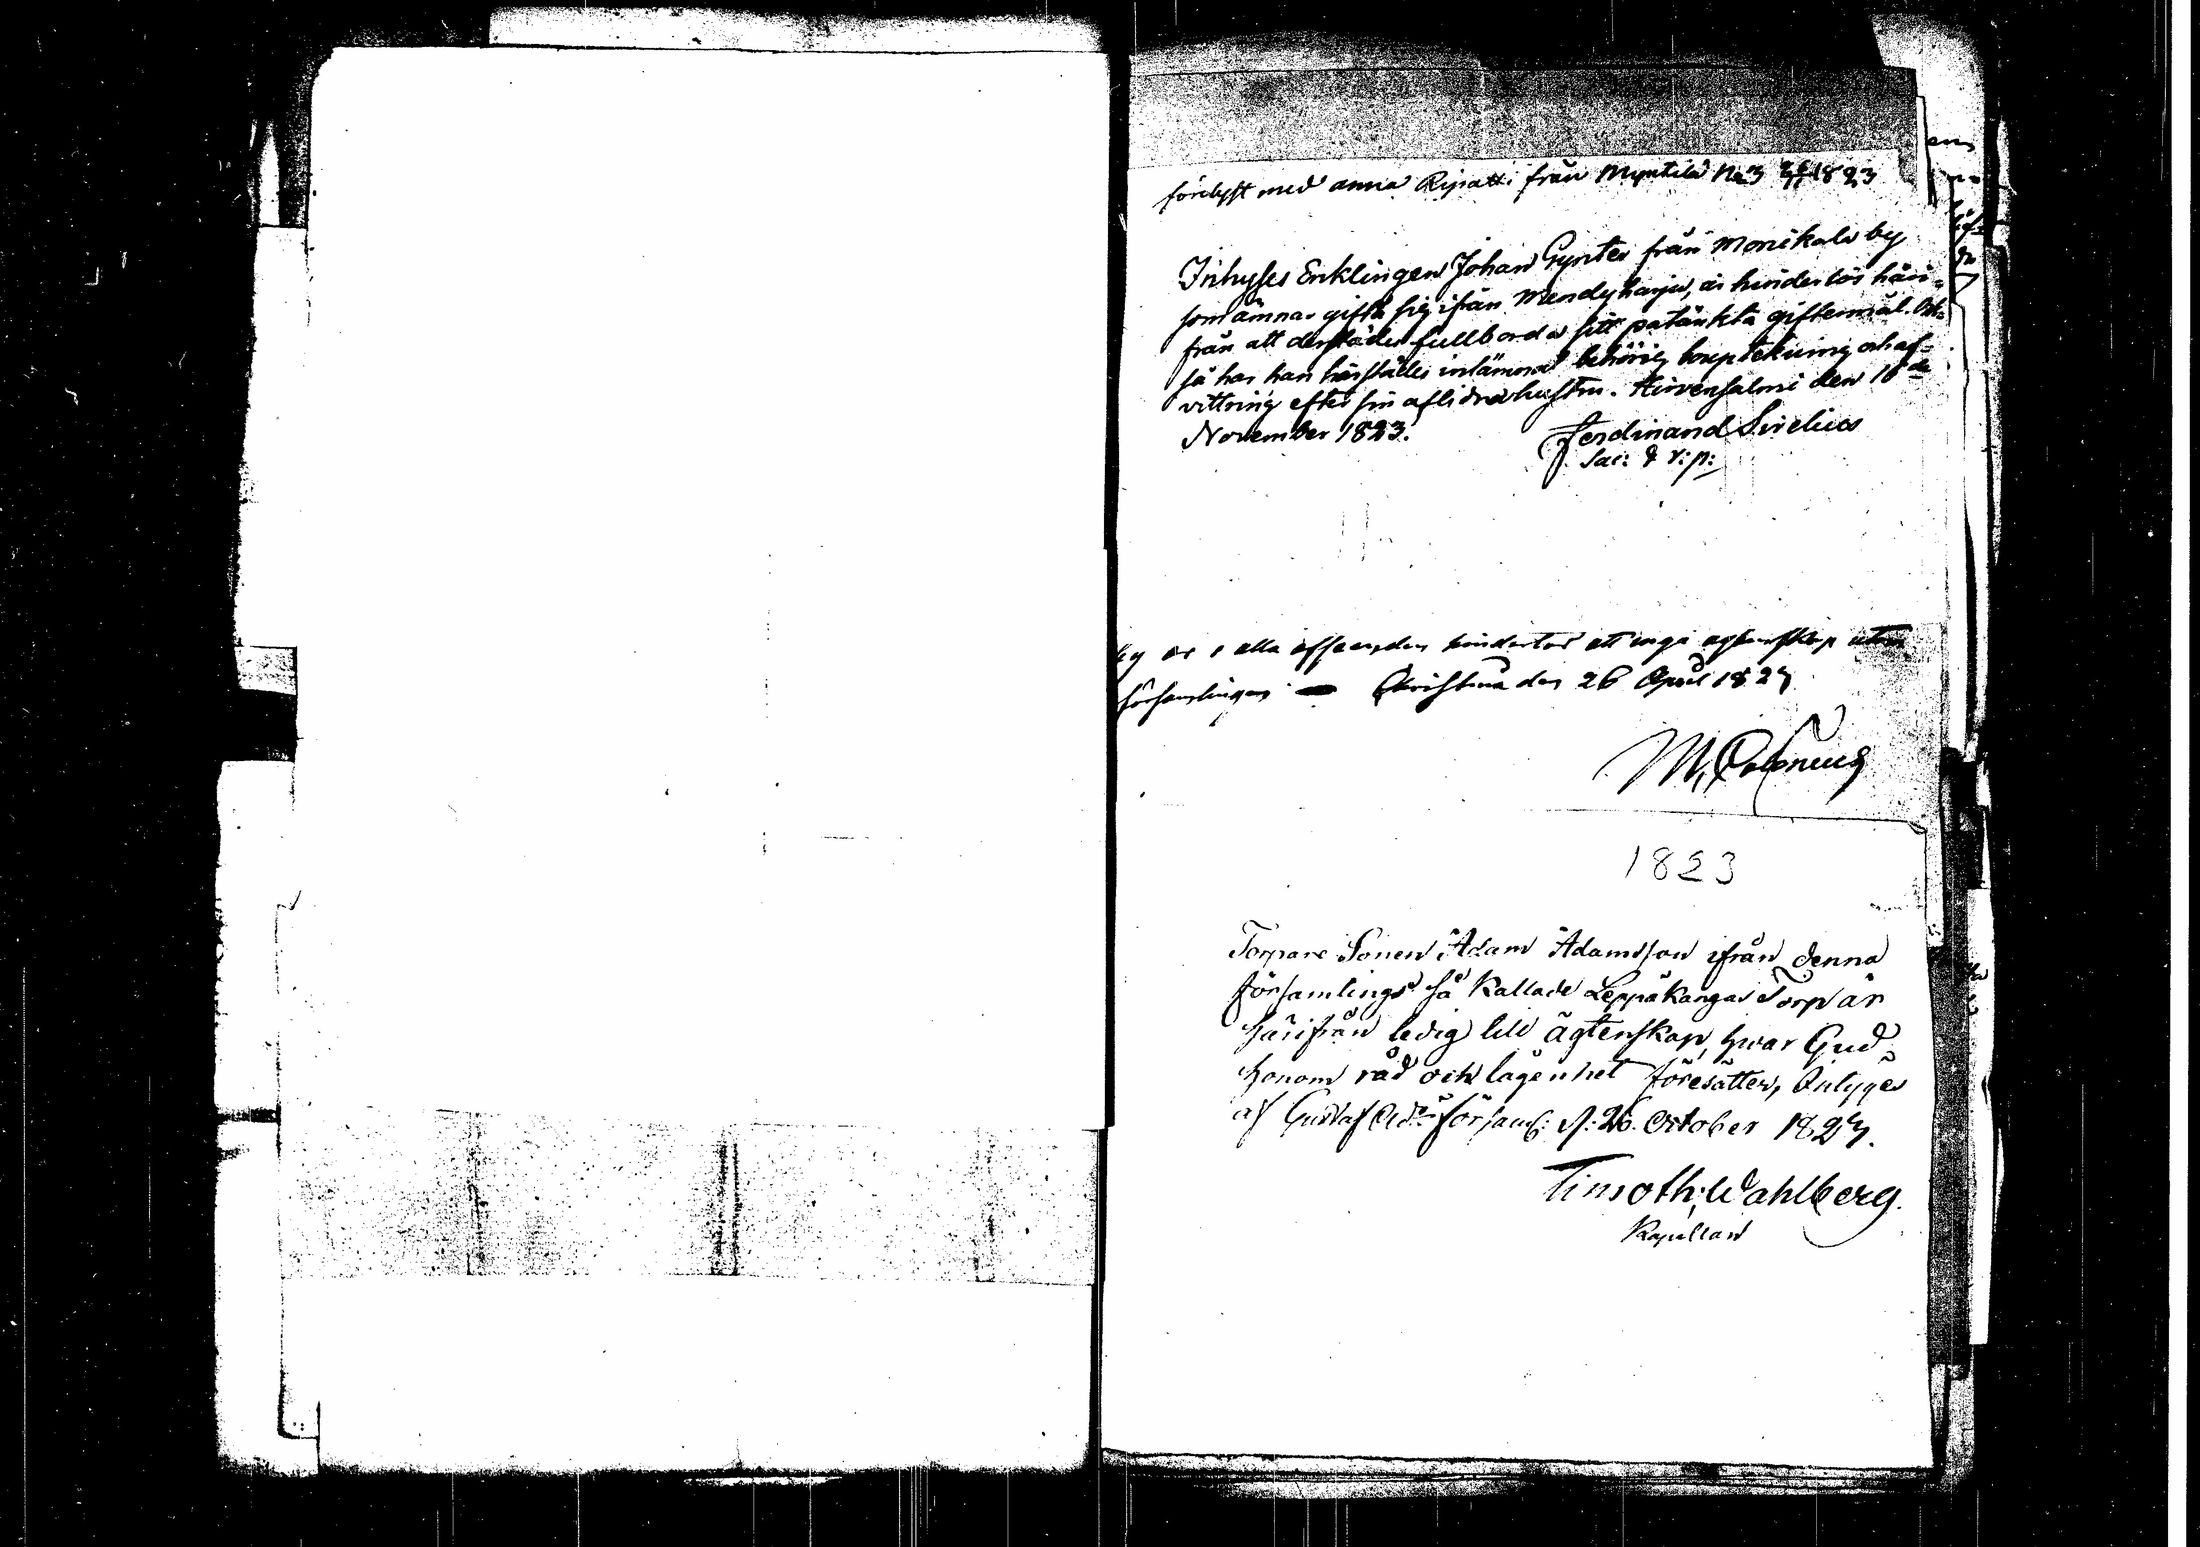 förelyst med Anna Ripatti från Myntilä No 3 1823
Inhyses Enklingen Johan Gynter från Monikala by
som ämnar gifta sig ifrån Mendyharju, är hinderlös häri-
från att derstädes fullborda sitt påtänkta giftermål. Ock-
så har han härstädes inlämnat behörig boupteckning och af-
vittring efter sin aflidna hustru. Hirvensalmi den 18de
November 1823.
Ferdinand Sirelius
Sac: & v: p:
by är i alla afseenden hinderlös att ingå ägtenskap utom
församlingen Christina den 26 April 1823
1823
Torpare Sonen Adam Adamsson ifrån denna
församlings så kallade Leppäkangas Torp är
härifrån ledig till ägtenskap, hwar Gud
honom råd och lägenhet föresätter, Intyges
af Gustaf Ad: Församl: d: 26. October 1823.
Timoth: Wahlberg.
Kapellan